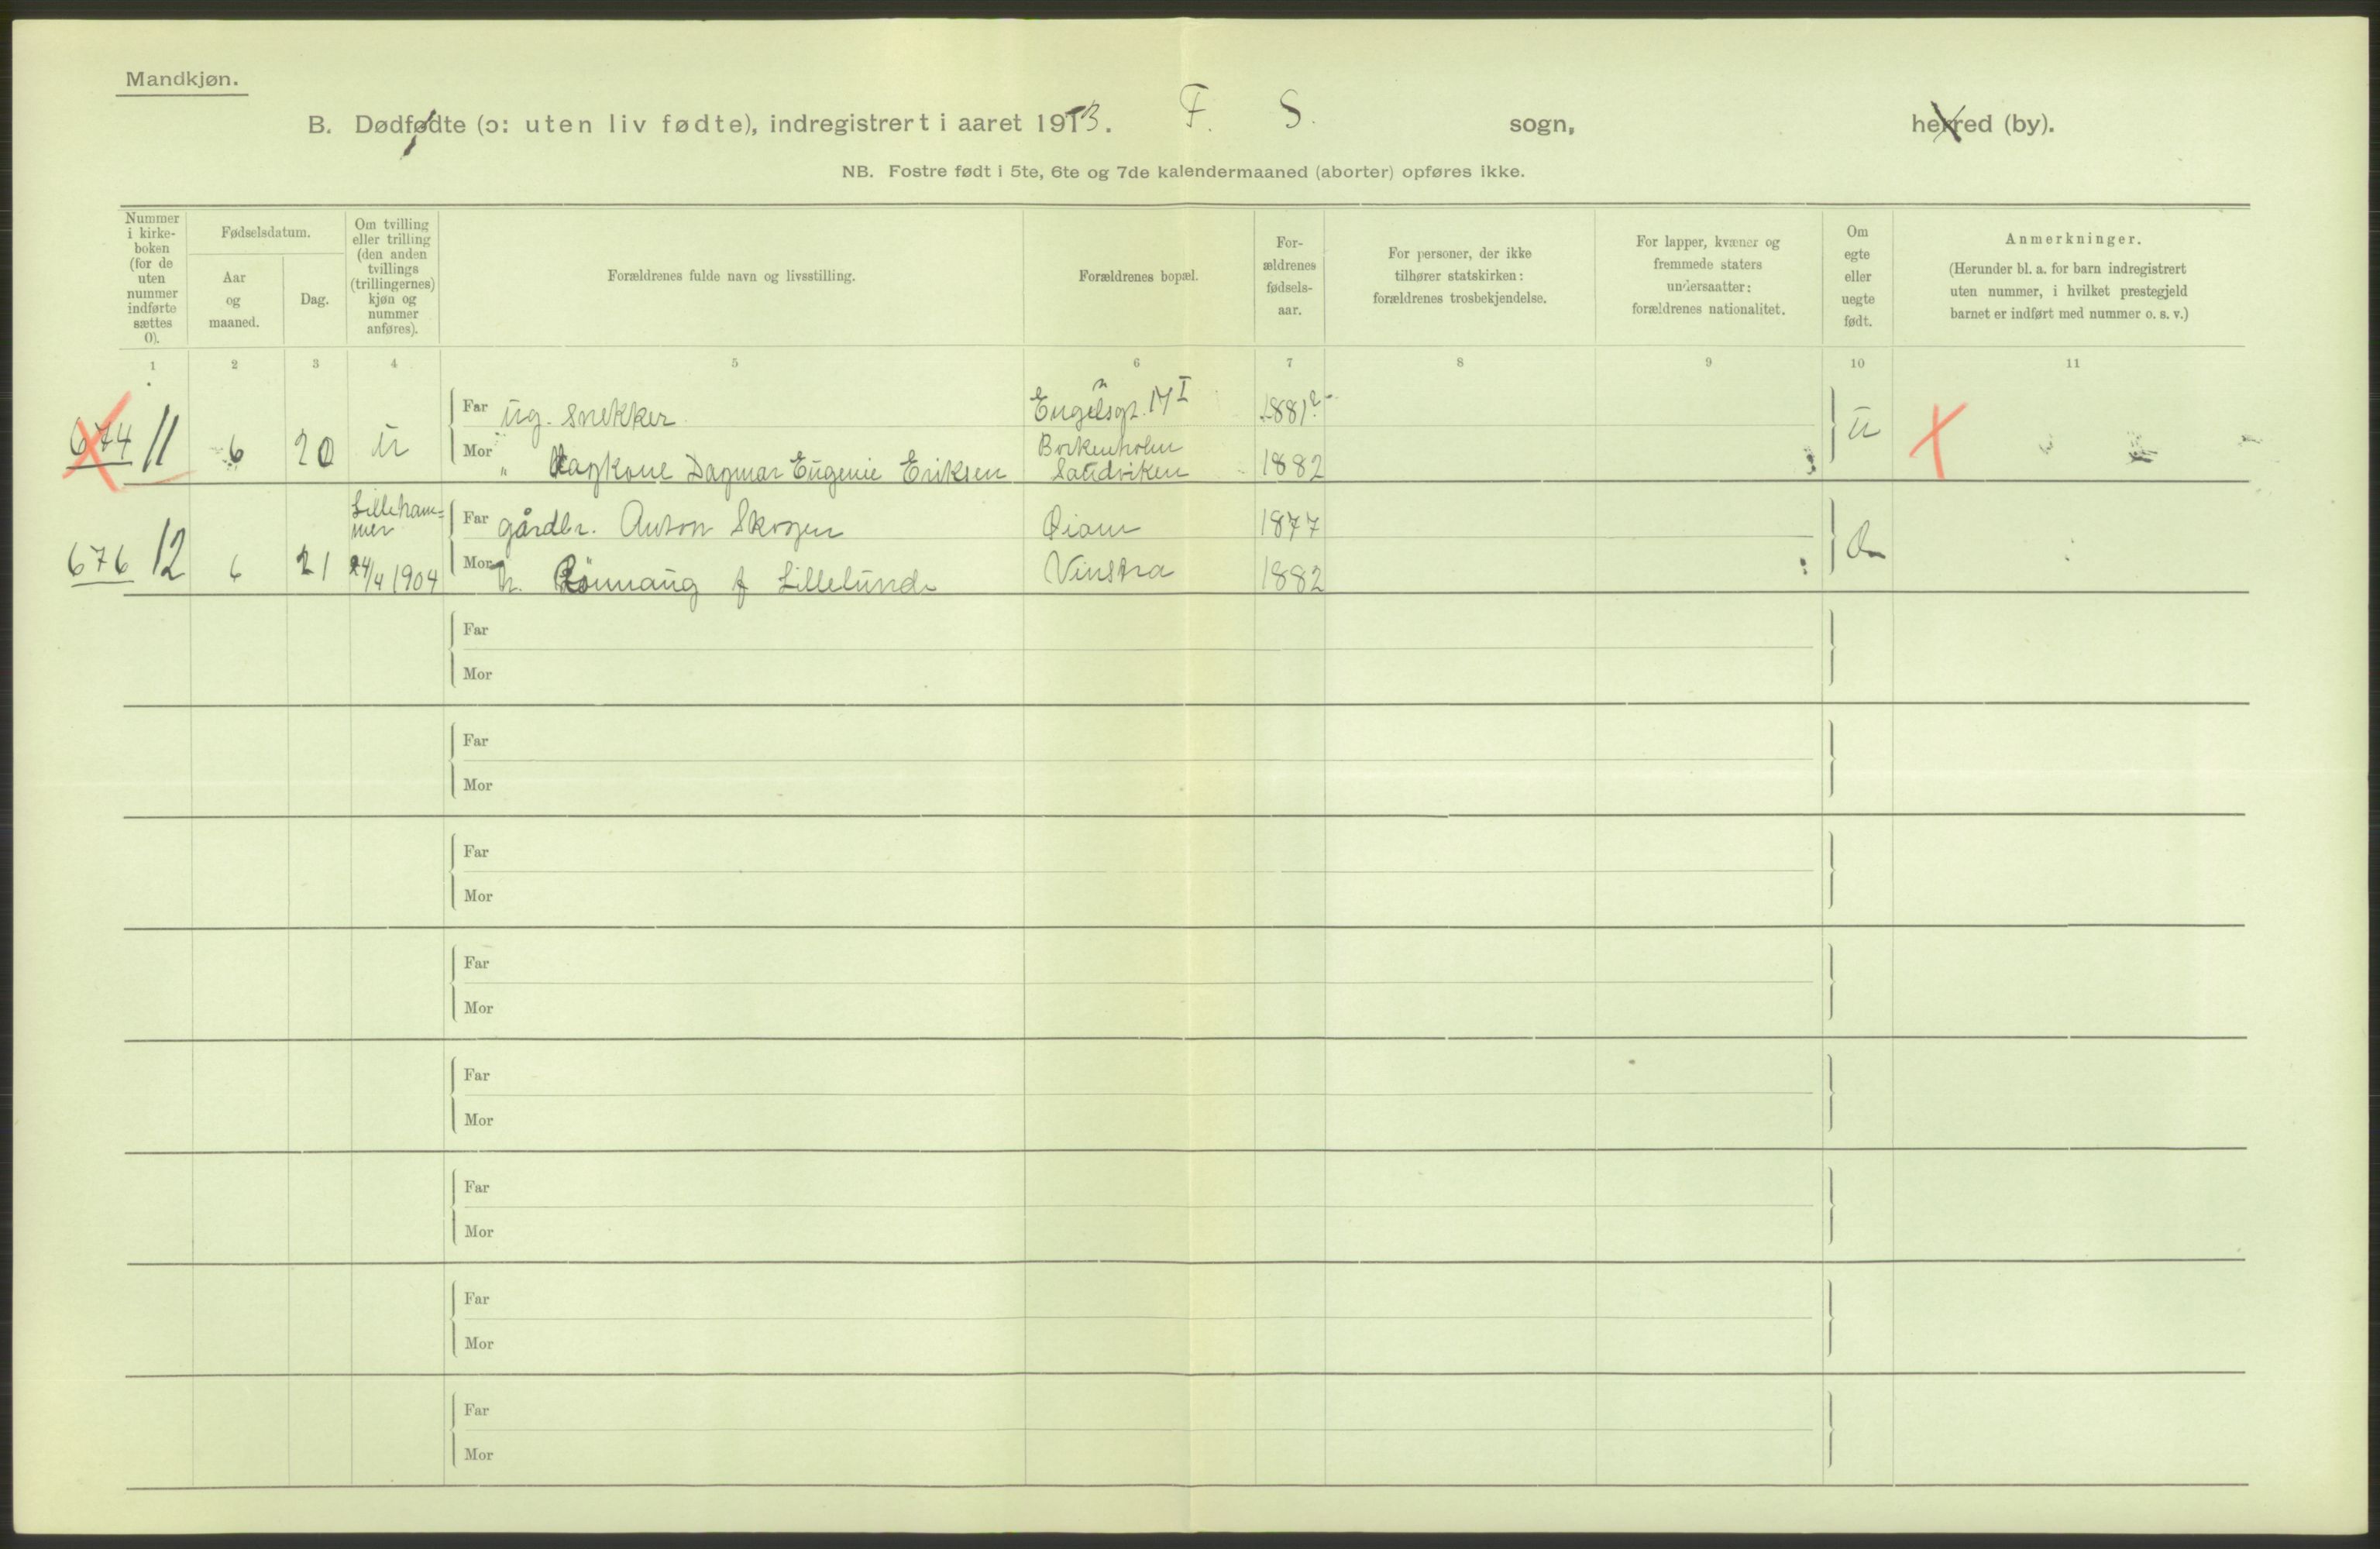 Mandkjøn.
B. Dødfødte (ɔ: uten liv fødte), indregistrert i aaret 1913. F. S. sogn, herred (by).
NB. Fostre født i 5te, 6te og 7de kalendermaaned (aborter) opføres ikke.
Nummer
i kirke-
boken
(for de
uten
nummer
indførte
sættes
0).
Fødselsdatum.
Aar
og
maaned.
Dag.
Om tvilling
eller trilling
(den anden
tvillings
(trillingernes)
kjøn og
nummer
anføres).
Forældrenes fulde navn og livsstilling.
Forældrenes bopæl.
For-
ældrenes
fødsels-
aar.
For personer, der ikke
tilhører statskirken:
forældrenes trosbekjendelse.
For lapper, kvæner og
fremmede staters
undersaatter:
forældrenes nationalitet.
Om
egte
eller
uegte
født.
Anmerkninger.
(Herunder bl. a. for barn indregistrert
uten nummer, i hvilket prestegjeld
barnet er indført med nummer o. s. v.)
1 2 3 4 5 6 7 8 9 10 11
Far ug. snekker Engelsgt. 14 I 1881?
674 11 6 20 u Mor Dagmar Eugenie Eriksen Sandviken 1882 u
Lilleham=
mer
Far gårdbr. Anton Skogen 1877
676 12 6 21 24/4 1904 Mor h. Rönnaug f Lillelunde Vinstra 1882
Far
Mor
Far
Mor
Far
Mor
Far
Mor
Far
Mor
Far
Mor
Far
Mor
Far
Mor